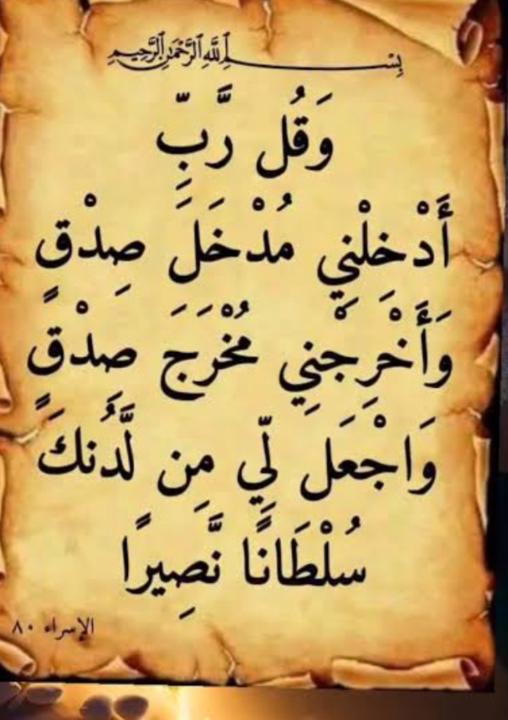 بِسْمِ ٱللَّهِ ٱلرَّحْمَٰنِ ٱلرَّحِيمِ
وَقُل رَّبِّ
أَدْخِلْنِي مُدْخَلَ صِدْقٍ
وَأَخْرِجْنِي مُخْرَجَ صِدْقٍ
وَاجْعَل لِّي مِن لَّدُنكَ
سُلْطَانًا نَّصِيرًا
الإسراء ٨٠